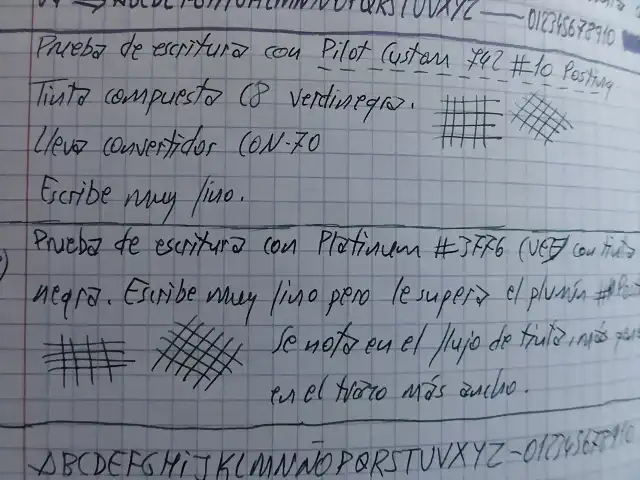 ABCDEFGHIJKLMNÑOPQRSTUVXYZ — 012345678910
Prueba de escritura con Pilot Custom 742 #10 Posting
Tinta compuesta C8 verdinegra.
Lleva convertidor CON-70
Escribe muy fino.
Prueba de escritura con Platinum #3776 (UEF) con tinta
negra. Escribe muy fino pero le supera el plumín
Se nota en el flujo de tinta, más
en el trazo más ancho.
ABCDEFGHiJKLMNÑOPQRSTUVXYZ - 012345678910